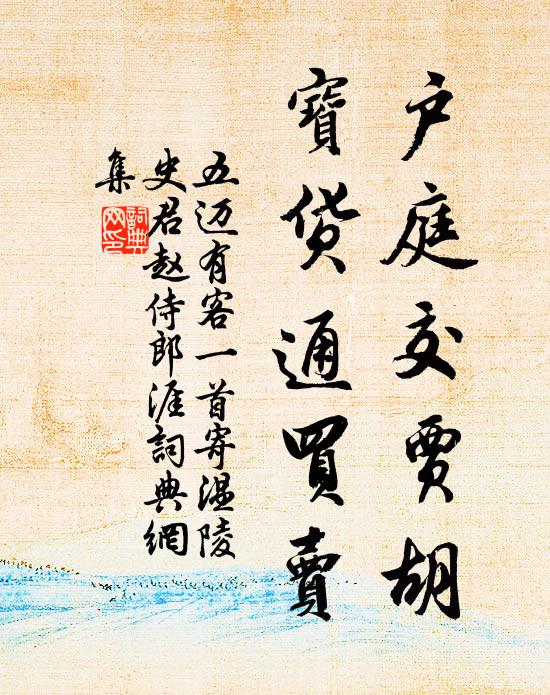 户庭交贾胡
寶货通買賣
五迈有客一首寄温陵
史君赵侍郎涯詞典網
集
詞典網印